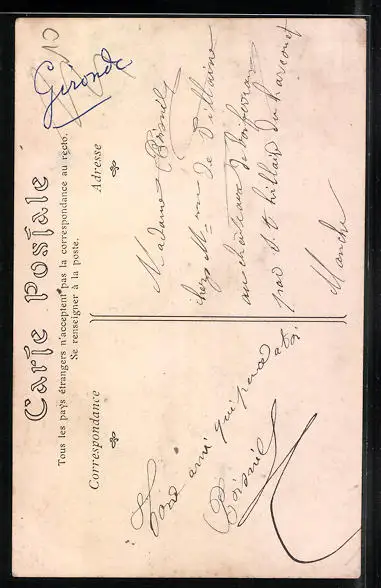 Gironde
Carte Postale
Tous les pays étrangers n'acceptent pas la correspondance au recto.
Se renseigner à la poste.
Correspondance
Adresse
ami qui pense à toi
Madame
chez Mme de
au château de
par St hillaire du harcouet
Manche